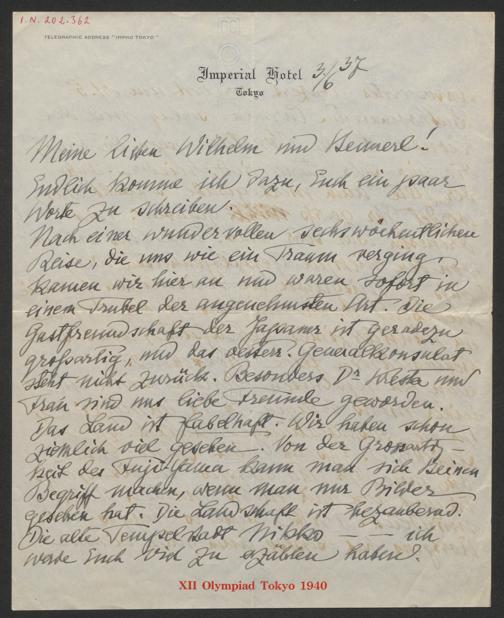 I.N. 202.362
TELEGRAPHIC ADDRESS "IMPHO TOKYO"
Imperial Hotel 3/6 37
Tokyo
Meine lieben Wilhelm und
Endlich komme ich dazu, Euch ein paar
Worte zu schreiben.
Nach einer wundervollen sechswöchentlichen
Reise, die uns wie ein Traum verging,
kamen wir hier an und waren sofort in
einem Trubel der angenehmsten Art. Die
Gastfreundschaft der Japaner ist geradezu
großartig, und das oesterr. Generalkonsulat
steht nicht zurück. Besonders Dr und
Frau sind uns liebe Freunde geworden.
Das Land ist fabelhaft. Wir haben schon
ziemlich viel gesehen. Von der Großartig-
keit des Fuji-Yama kann man sich keinen
Begriff machen, wenn man nur Bilder
gesehen hat. Die Landschaft ist bezaubernd.
Die alte Tempelstadt Nikko — — ich
werde Euch viel zu erzählen haben!
XII Olympiad Tokyo 1940